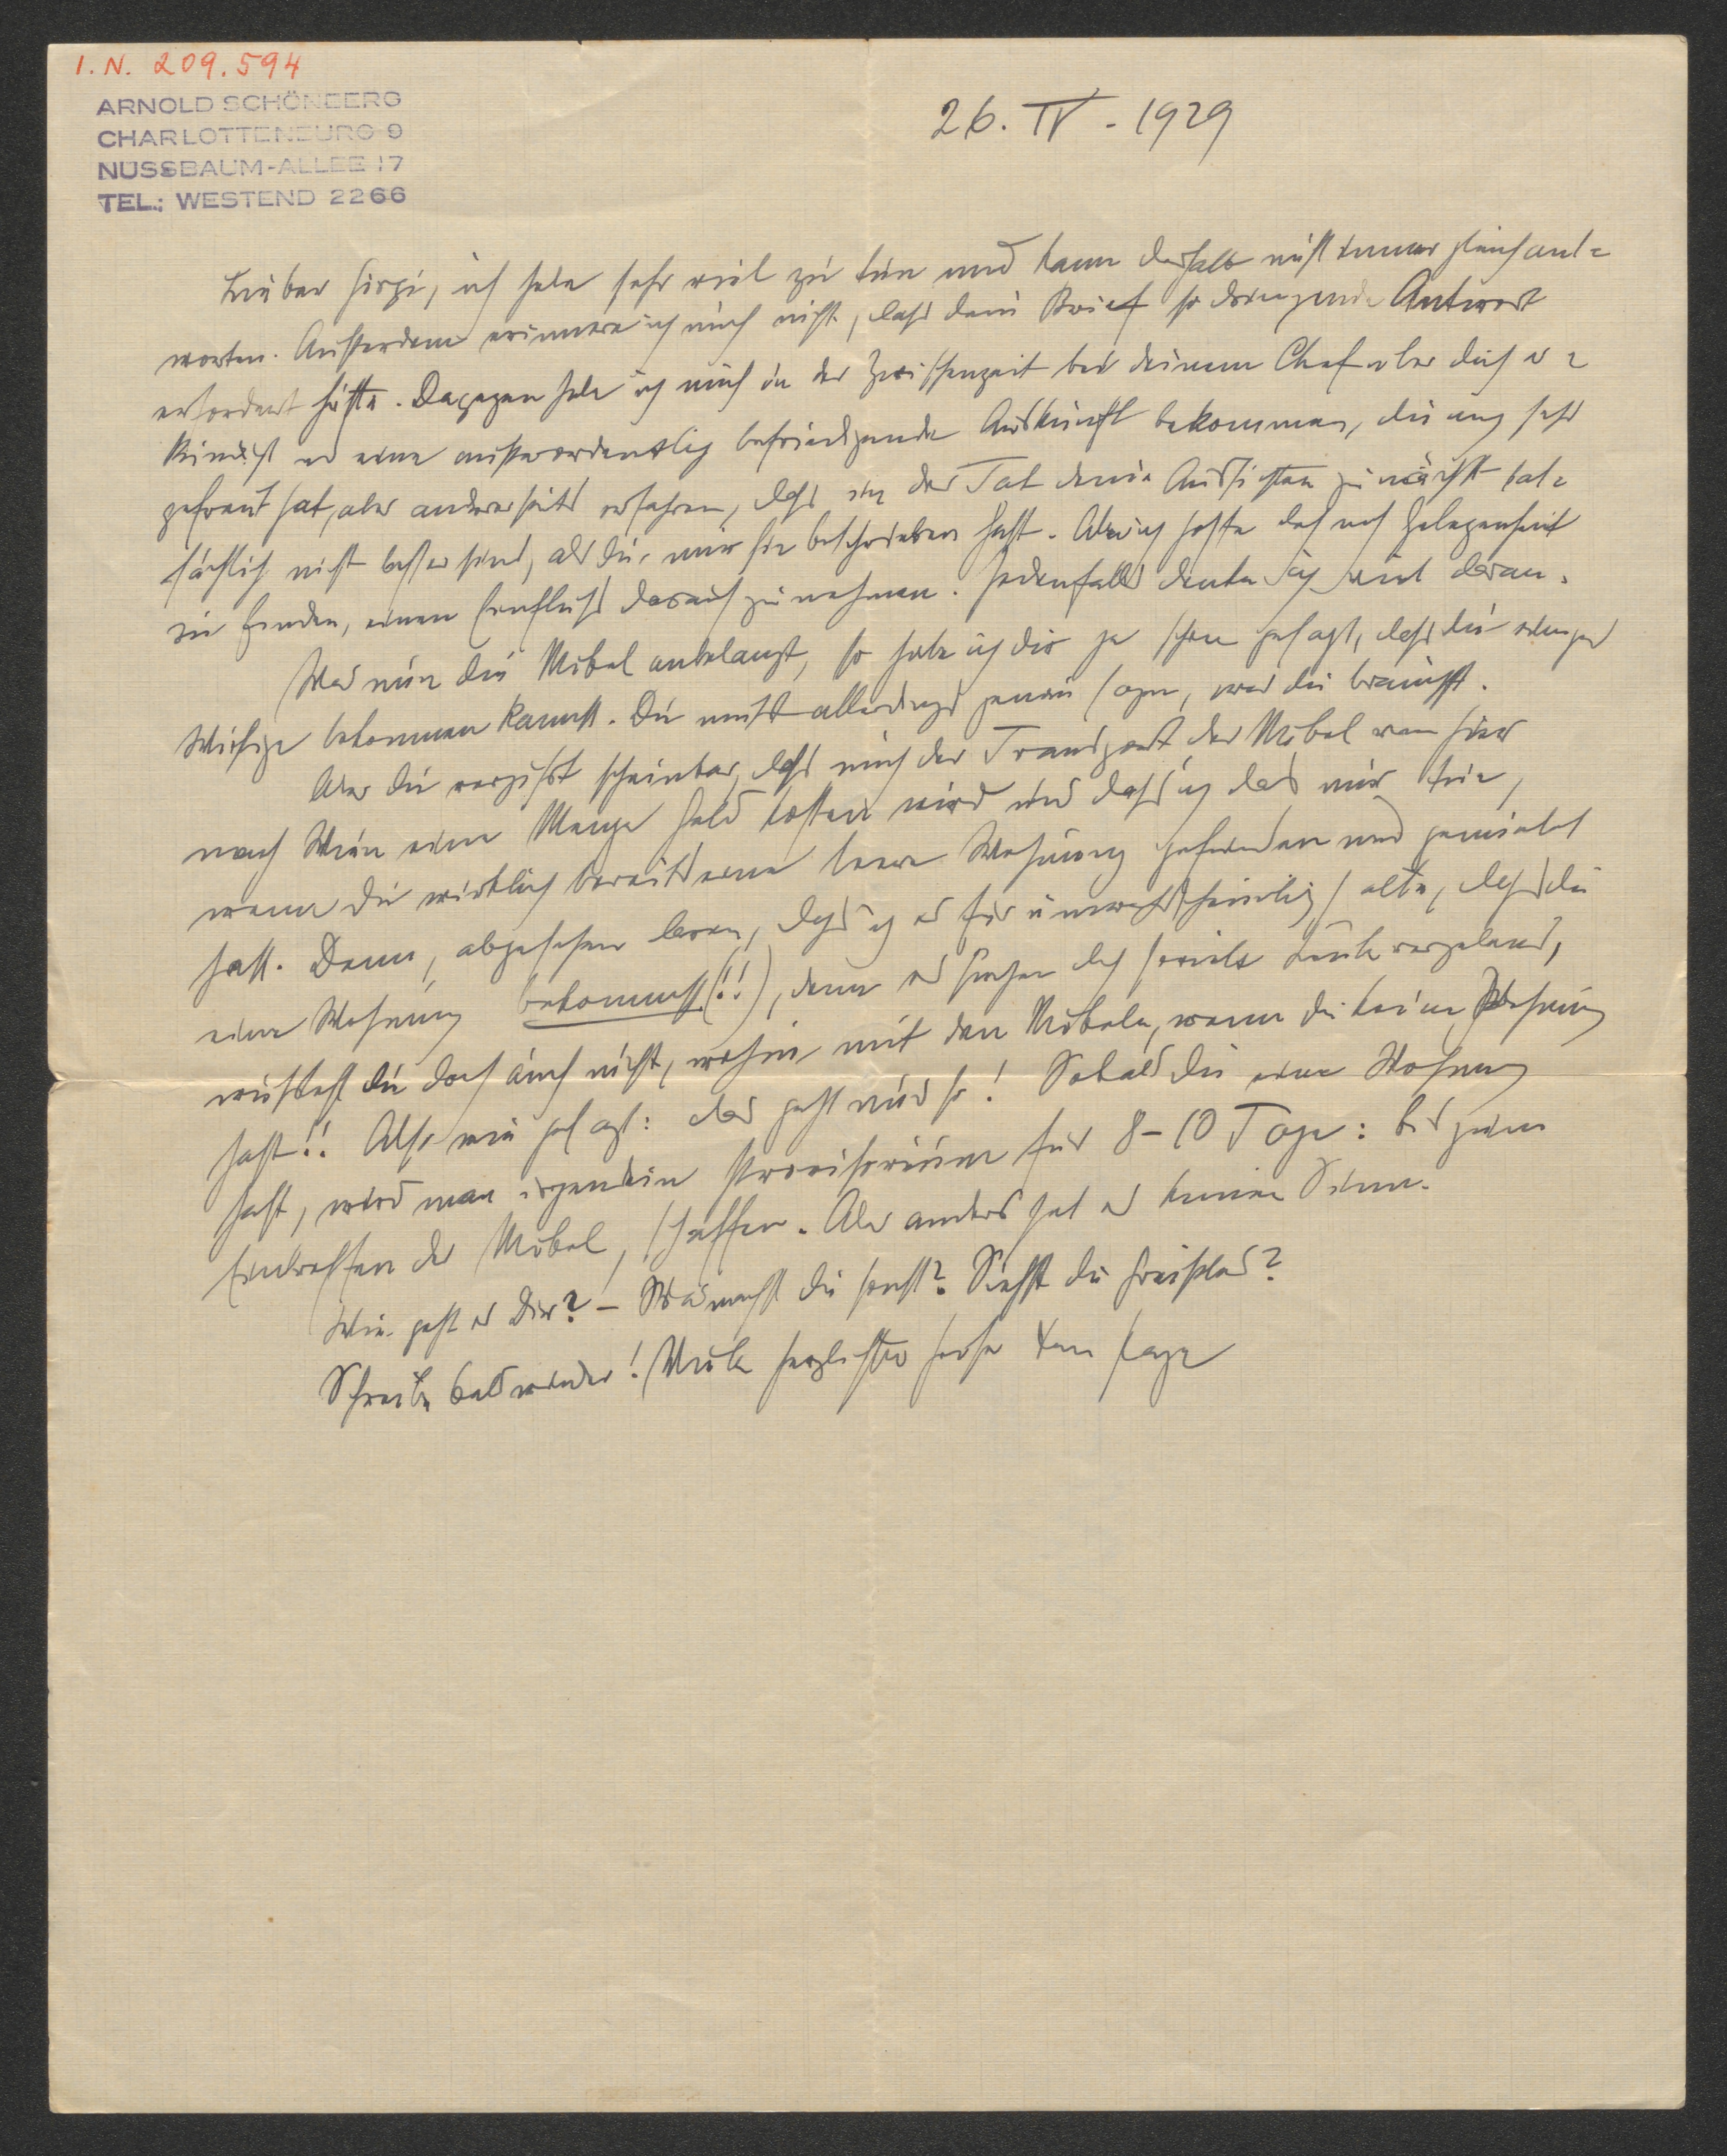 I.N. 209.594
ARNOLD SCHÖNBERG
CHARLOTTENBURG 9
NUSSBAUM-ALLEE 17
TEL.: WESTEND 2266
26. IV - 1929
Lieber Görgi, ich habe sehr viel zu tun und kann deshalb nicht immer gleich ant=
worten. Ausserdem erinnere ich mich nicht, dass dein Brief so dringende Antwort
erfordert hätte. Dagegen habe ich mich in der Zwischenzeit bei deinem Chef über dich er=
kundigt und eine ausserordentlich befriedigende Auskunft bekommen, die mich sehr
gefreut hat, aber andererseits erfahren, dass in der Tat deine Aussichten zunächst tat=
sächlich nicht besser sind, als du mir sie beschrieben hast. Aber ich hoffe doch noch Gelegenheit
zu finden, einen Einfluss darauf zu nehmen. Jedenfalls denke ich viel daran.
Was nun die Möbel anbelangt, so habe ich dir ja schon gesagt, dass du einiges
Wichtige bekommen kannst. Du musst allerdings genau sagen, was du brauchst.
Aber du vergisst scheinbar, dass mich der Transport der Möbel von hier
nach Wien eine Menge Geld kosten wird und dass ich das nur tue,
wenn du wirklich bereits eine leere Wohnung gefunden und gemietet
hast. Denn, abgesehen davon, dass ich es für unwahrscheinlich halte, dass du
eine Wohnung bekommst (!!), denn es suchen doch soviele Leute vergebens,
wüsstest du doch auch nicht, wohin mit den Möbeln, wenn du keine Wohnung
hast!! Also wie gesagt: das geht nur so! Sobald du eine Wohnung
hast, wird man irgendein Provisorium für 8–10 Tage: bis zum
Eintreffen der Möbel, schaffen. Aber anders hat es keinen Sinn.
Wie geht es Dir? – Was machst du sonst? Siehst du Greissle's?
Schreibe bald wieder! Viele herzlichste Grüße Dein Papa